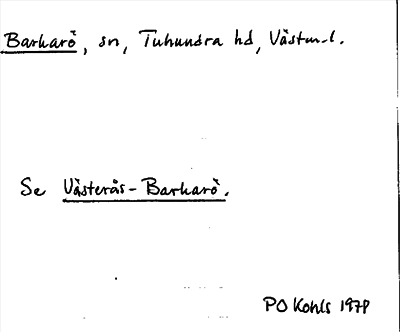 Barkarö, sn, Tuhundra hd, Västm.l.
Se Västerås-Barkarö.
PO Kohls 1978